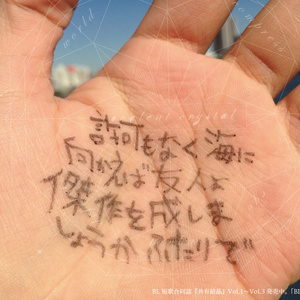 world
tomorrow
crystal
許可もなく海に
向かえば友人よ
傑作を成しま
しょうかふたりで
BL短歌合同誌『共有結晶』Vol.1～Vol.3発売中。「BL